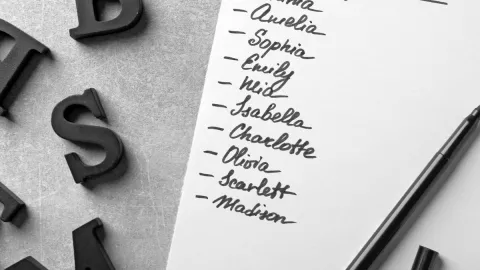 - Amelia
- Sophia
- Emily
- Mia
- Isabella
- Charlotte
- Olivia
- Scarlett
- Madison
S